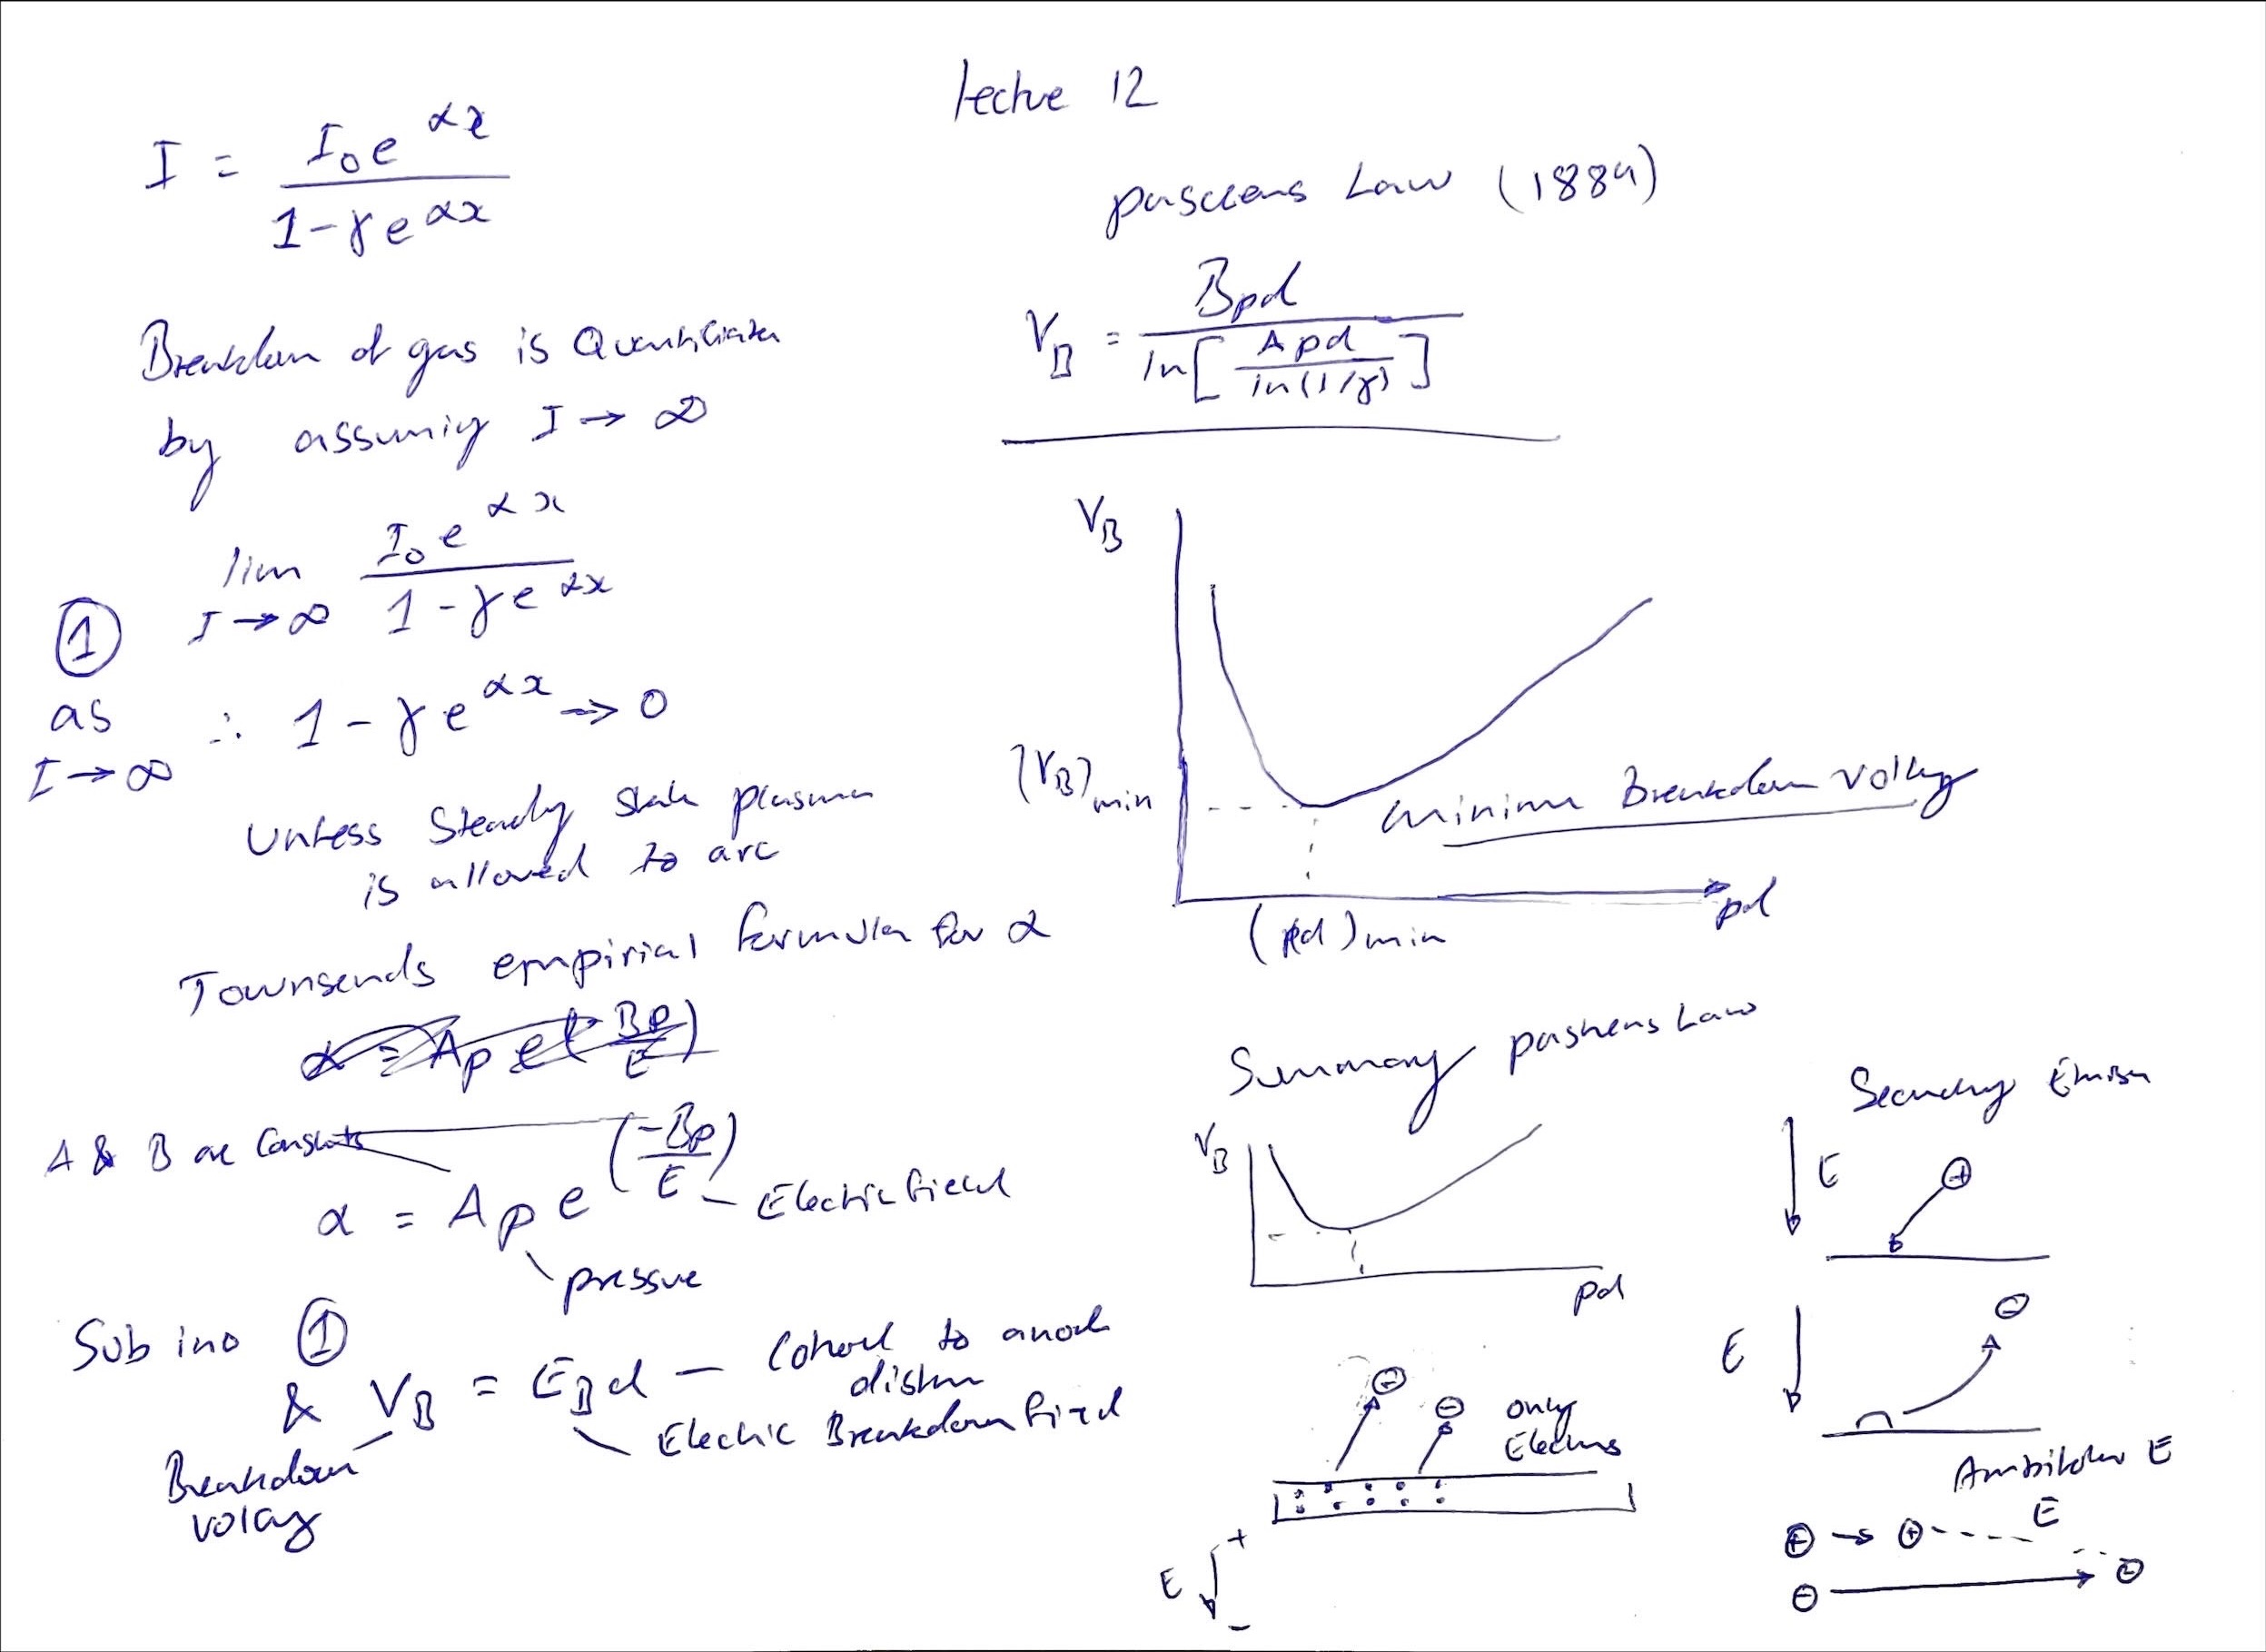 Lecture 12
I = I₀e^αx / 1-γe^αx
Breakdown of gas is Quantified
by assuming I → ∞
① lim I→∞ I₀e^αx / 1-γe^αx
as I→∞ ∴ 1-γe^αx → 0
Unless Steady state plasma
is allowed to arc
Townsends empirical formula for α
α = Ap e(-Bp/E)
A & B are Constants
α = Ap e^(-Bp/E) - Electric field
pressure
Sub ino ①
& V_B = E_B d - Cathode to anode
distance
Electric Breakdown field
Breakdown
voltage
paschens Law (1889)
V_B = Bpd / ln[Apd / ln(1/γ)]
V_B
(V_B)min
minimum Breakdown voltage
pd
(pd)min
Summary pashens Law
V_B
pd
⊖ ⊖ only
Electrons
E + -
Secondary Emission
E ⊕
E ⊖
Ambipolar E
E
⊕ → ⊕ ----
⊖ → ⊖